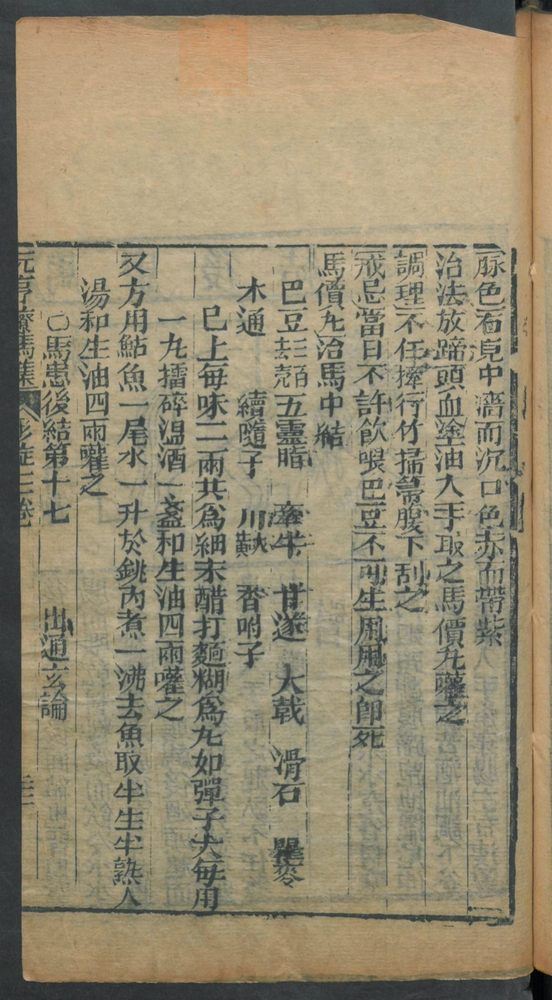 脉色右鳬中濇而沉口色赤而帶紫
治法放蹄頭血塗油入手取之馬價丸灌之
調理不住牽行竹掃箒腹下刮之
戒忌當日不許飲喂巴豆不可生用用之卽死
馬價丸治馬中結
巴豆去殼 五靈脂 牽牛 甘遂 大戟 滑石 瞿麥
木通 續隨子 香附子
已上每味二兩共爲細末醋打麵糊爲丸如彈子大每用
一丸擂碎溫酒一盞和生油四兩灌之
又方用鮎魚一尾水一升於銚內煮一沸去魚取半生半熟人
湯和生油四兩灌之
○馬患後結第十七 出通玄論
元亨療馬集 形症三卷